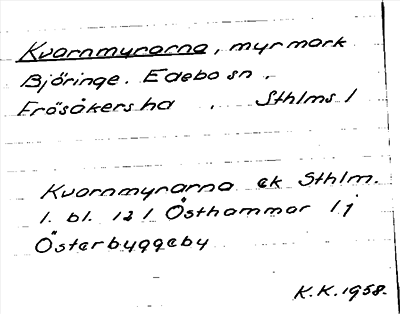 Kvarnmyrarna, myrmark
Björinge. Edebo sn.
Frösåkers hd. Sthlms l
Kvarnmyrarna ek Sthlm.
l. bl. 12 l Östhammar 1 j
Österbyggeby
K.K. 1958.